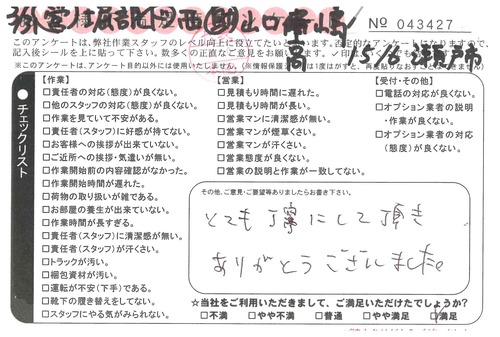 No 043427
15/16
このアンケートは、弊社作業スタッフのレベル向上に役立てたいと
記入後シールを上に貼って下さい。数多くの正直なご意見をお願
※このアンケートは、アンケート目的以外には使用いたしません。
チェックリスト
【作業】
□責任者の対応(態度)が良くない。
□他のスタッフの対応(態度)が良くない。
□作業を見ていて不安がある。
□責任者(スタッフ)に好感が持てない。
□お客様への挨拶が出来ていない。
□ご近所への挨拶・気遣いが無い。
□作業開始前の内容確認がなかった。
□作業開始時間が遅れた。
□荷物の取り扱いが雑である。
□お部屋の養生が出来ていない。
□作業時間が長すぎる。
□責任者(スタッフ)に清潔感が無い。
□責任者(スタッフ)が汗くさい。
□トラックが汚い。
□梱包資材が汚い。
□運転が不安(下手)である。
□靴下の履き替えをしてない。
□スタッフにやる気がみられない。
【営業】
□見積もり時間に遅れた。
□見積もり時間が長い。
□営業マンに清潔感が無い。
□営業マンが煙草くさい。
□営業マンが汗くさい。
□営業態度が良くない。
□営業の説明と作業が一致してない。
【受付・その他】
□電話の対応が良くない。
□オプション業者の説明
・作業が良くない。
□オプション業者の対応
(態度)が良くない。
その他、ご意見・ご要望等ありましたらお書き下さい。
とても丁寧にして頂き
ありがとうございました。
☆当社をご利用いただきまして、ご満足いただけたでしょうか?
□不満 □やや不満 □普通 □やや満足 □満足